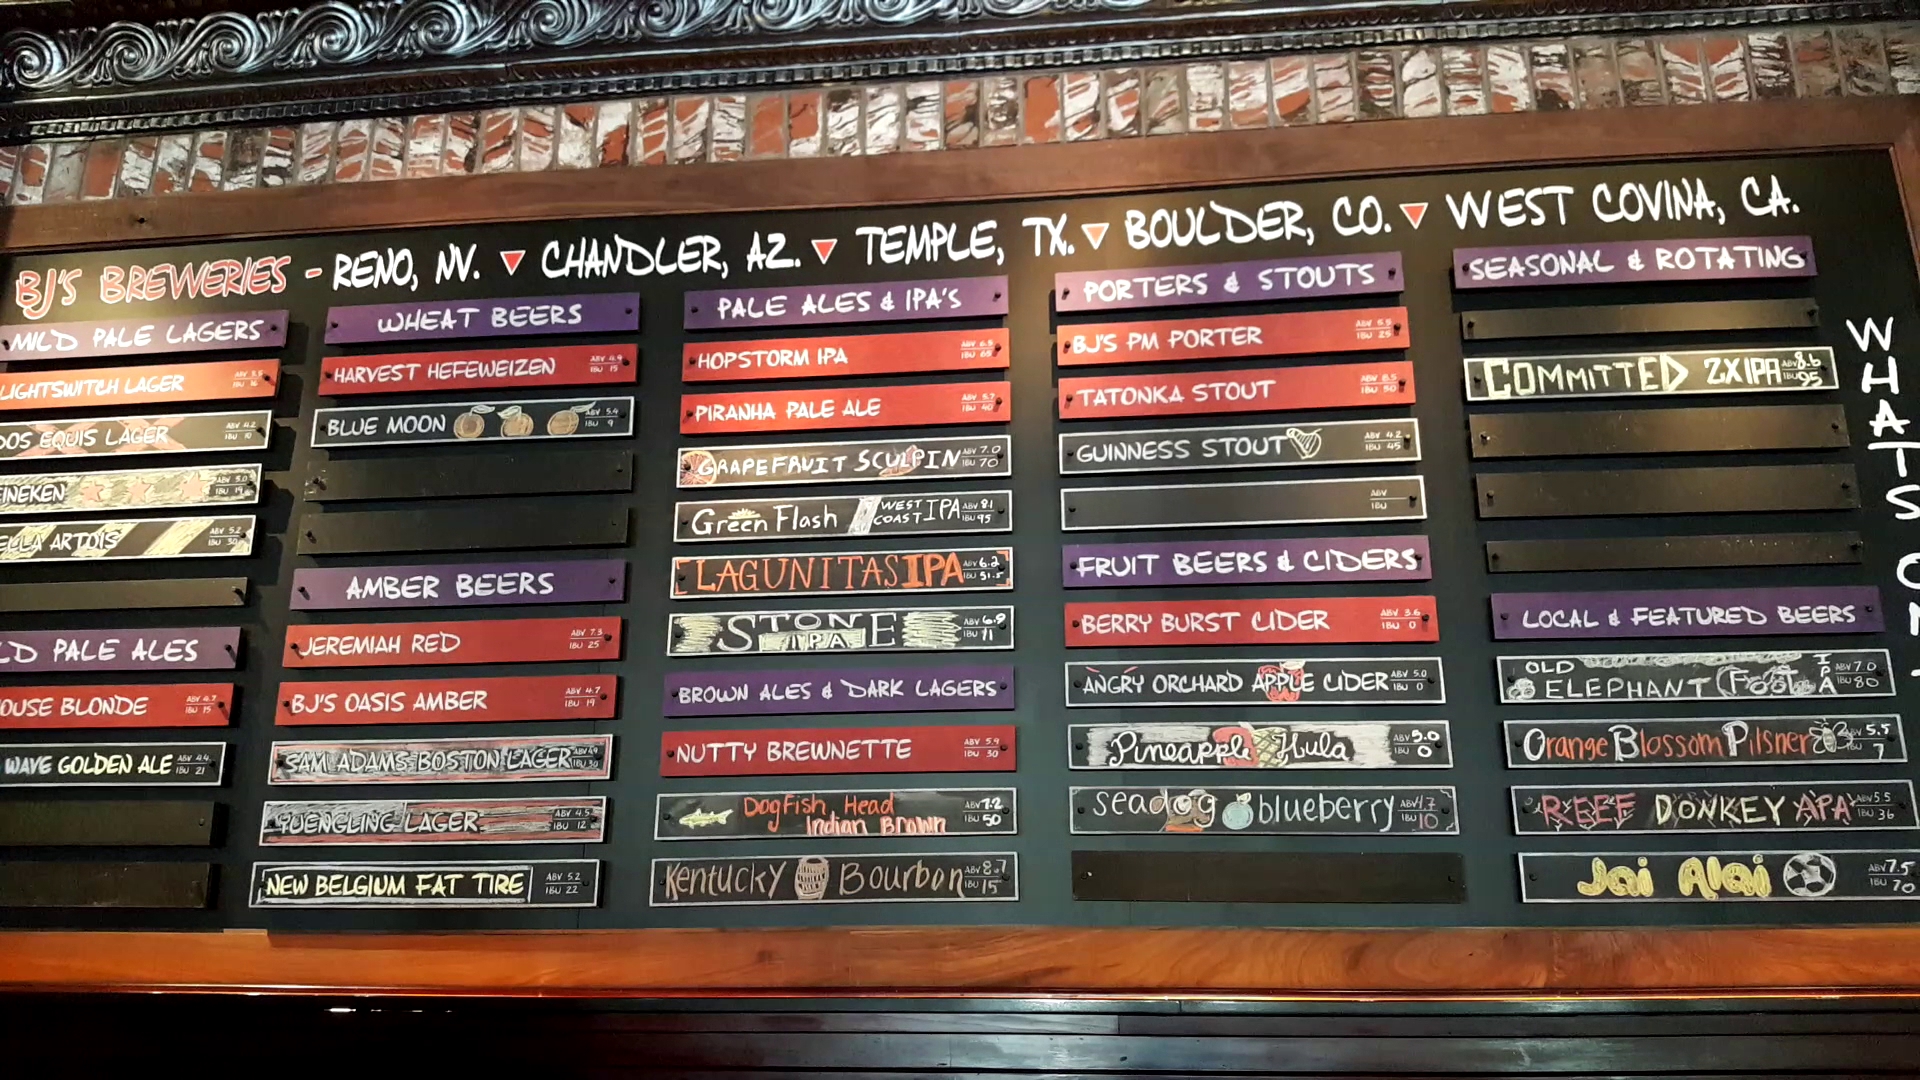 BJ'S BREWERIES - RENO, NV. ▼ CHANDLER, AZ. ▼ TEMPLE, TX. ▼ BOULDER, CO. ▼ WEST COVINA, CA.
MILD PALE LAGERS
LIGHTSWITCH LAGER ABV 3.5 IBU 16
DOS EQUIS LAGER ABV 4.2 IBU 10
EINEKEN ABV 5.0 IBU 19
ELLA ARTOIS ABV 5.2 IBU 30
LD PALE ALES
OUSE BLONDE ABV 4.7 IBU 15
WAVE GOLDEN ALE ABV 4.4 IBU 21
WHEAT BEERS
HARVEST HEFEWEIZEN ABV 4.9 IBU 15
BLUE MOON ABV 5.4 IBU 9
AMBER BEERS
JEREMIAH RED ABV 7.3 IBU 25
BJ'S OASIS AMBER ABV 4.7 IBU 19
SAM ADAMS BOSTON LAGER ABV 4.9 IBU 30
YUENGLING LAGER ABV 4.5 IBU 12
NEW BELGIUM FAT TIRE ABV 5.2 IBU 22
PALE ALES & IPA'S
HOPSTORM IPA ABV 6.5 IBU 65
PIRANHA PALE ALE ABV 5.7 IBU 40
GRAPEFRUIT SCULPIN ABV 7.0 IBU 70
Green Flash WEST COAST IPA ABV 8.1 IBU 95
LAGUNITAS IPA ABV 6.2 IBU 51.5
STONE IPA ABV 6.9 IBU 71
BROWN ALES & DARK LAGERS
NUTTY BREWNETTE ABV 5.9 IBU 30
DogFish Head Indian Brown ABV 7.2 IBU 50
Kentucky Bourbon ABV 8.7 IBU 15
PORTERS & STOUTS
BJ'S PM PORTER ABV 5.5 IBU 25
TATONKA STOUT ABV 8.5 IBU 50
GUINNESS STOUT ABV 4.2 IBU 45
ABV IBU
FRUIT BEERS & CIDERS
BERRY BURST CIDER ABV 3.6 IBU 0
ANGRY ORCHARD APPLE CIDER ABV 5.0 IBU 0
Pineapple Hula ABV 5.0 IBU 0
seadog blueberry ABV 4.7 IBU 10
SEASONAL & ROTATING
COMMITTED 2X IPA ABV 8.6 IBU 95
LOCAL & FEATURED BEERS
OLD ELEPHANT Foot IPA ABV 7.0 IBU 80
Orange Blossom Pilsner ABV 5.5 IBU 7
REEF DONKEY APA ABV 5.5 IBU 36
Jai Alai ABV 7.5 IBU 70
WHATS ON T